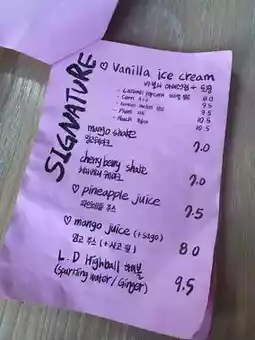 SIGNATURE
♡ Vanilla ice cream
바닐라 아이스크림 + 토핑
- Caramel popcorn 8.0
- Corn 9.5
- Korean melon 참외 9.5
- Plum 10.5
- Peach 10.5
mango shake 7.0
망고쉐이크
cherryberry shake 7.0
체리베리 쉐이크
♡ pineapple juice 7.5
파인애플 주스
♡ mango juice (+sago) 8.0
망고 주스 (+사고 펄)
L.D Highball 하이볼 9.5
(Sparkling water / Ginger)